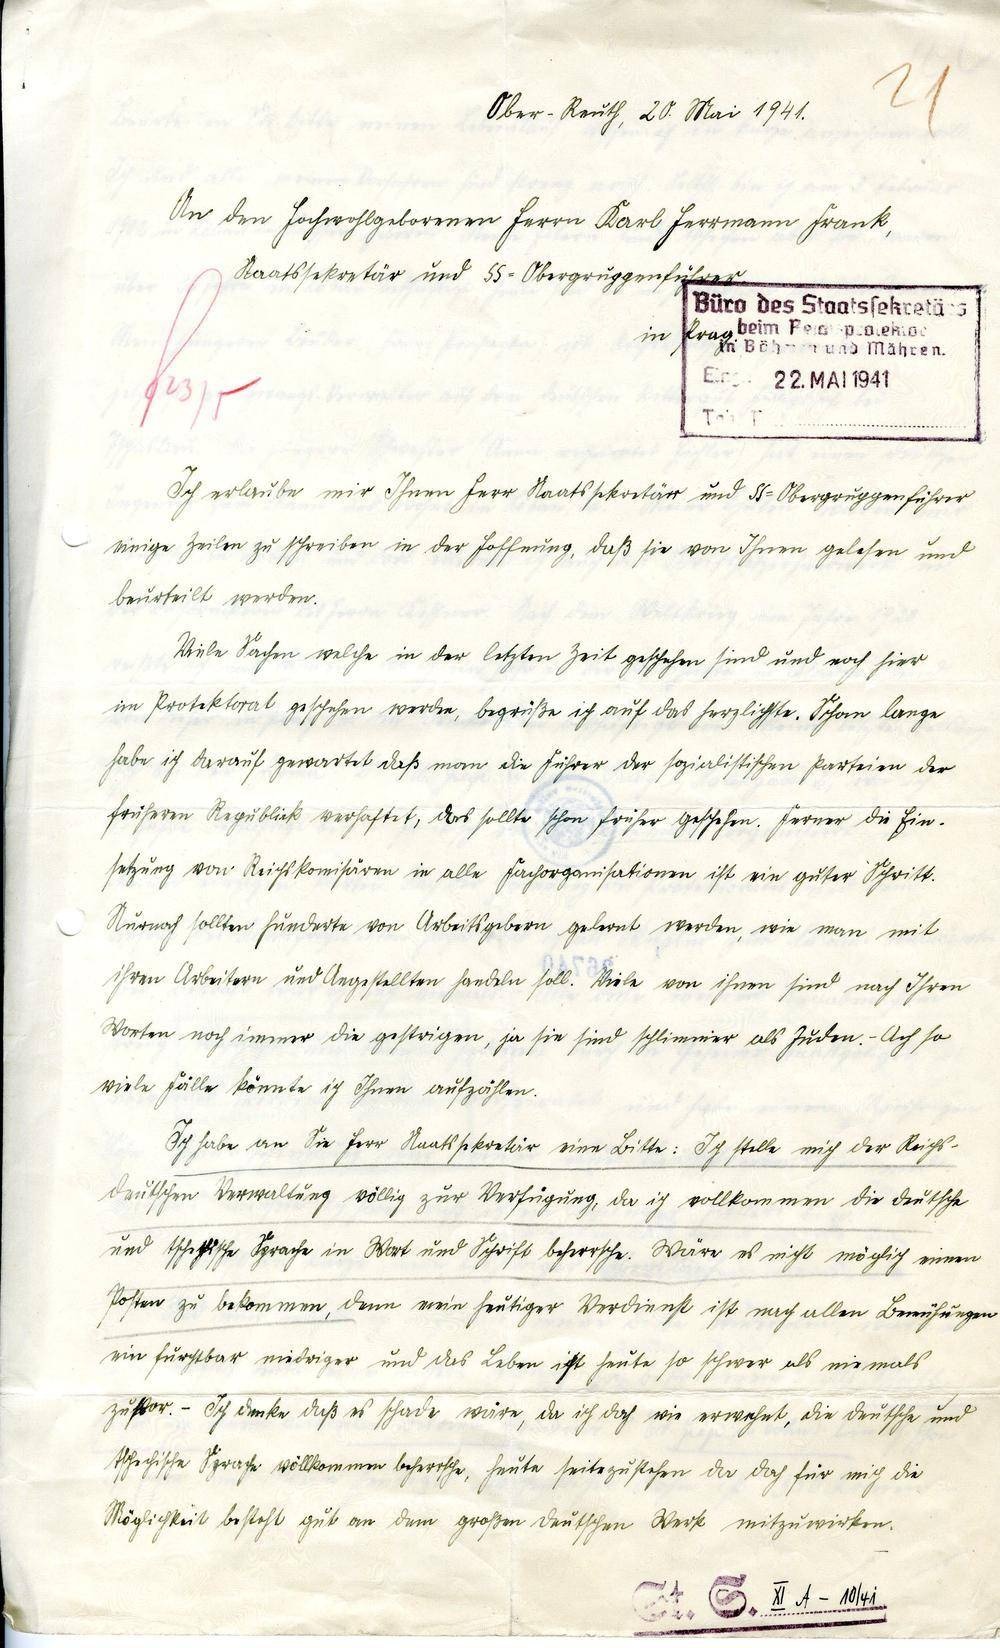 21
Ober-Reuth, 20. Mai 1941.
An den Hochwohlgeborenen Herrn Karl Herrmann Frank,
Staatssekretär und SS-Obergruppenführer
in Prag
Büro des Staatssekretärs
beim Reichsprotektor
in Böhmen und Mähren.
Eing. 22. MAI 1941
23/5
Ich erlaube mir Ihnen Herr Staatssekretärr und SS-Obergruppenführer
einige Zeilen zu schreiben in der Hoffnung, daß sie von Ihnen gelesen und
beurteilt werden.
Viele Sachen welche in der letzten Zeit geschehen sind und noch hier
im Protektorat geschehen werden, begrüße ich auf das herzlichste. Schon lange
habe ich darauf gewartet daß man die Führer der sozialistischen Parteien der
früheren Republick verhaftet, das sollte schon früher geschehen. Ferner die Ein-
setzung von Reichskomisären in alle Fachorganisationen ist ein guter Schritt.
Nurnoch sollten hunderte von Arbeitsgebern gelernt werden, wie man mit
ihren Arbeitern und Angestellten handeln soll. Viele von ihnen sind nach Ihren
Worten noch immer die gestrigen, ja sie sind schlimmer als Juden.- Ach so
viele Fälle könnte ich Ihnen aufzählen.
Ich habe an Sie Herr Staatssekretär eine Bitte: Ich stelle mich der Reichs-
deutschen Verwaltung völlig zur Verfügung, da ich vollkommen die deutsche
und tschechische Sprache in Wort und Schrift beherrsche. Wäre es nicht möglich einen
Posten zu bekommen, denn mein heutiger Verdienst ist nach allen Bemühungen
ein furchtbar niedriger und das Leben ist heute so schwer als niemals
zuvor.- Ich denke daß es schade wäre, da ich doch wie erwehnt, die deutsche und
tschechische Sprache vollkommen beherrsche, heute seitezustehen da doch für mich die
Möglichkeit besteht gut an dem großen Deutschen Werk mitzuwirken.
St. S. XI A - 10/41